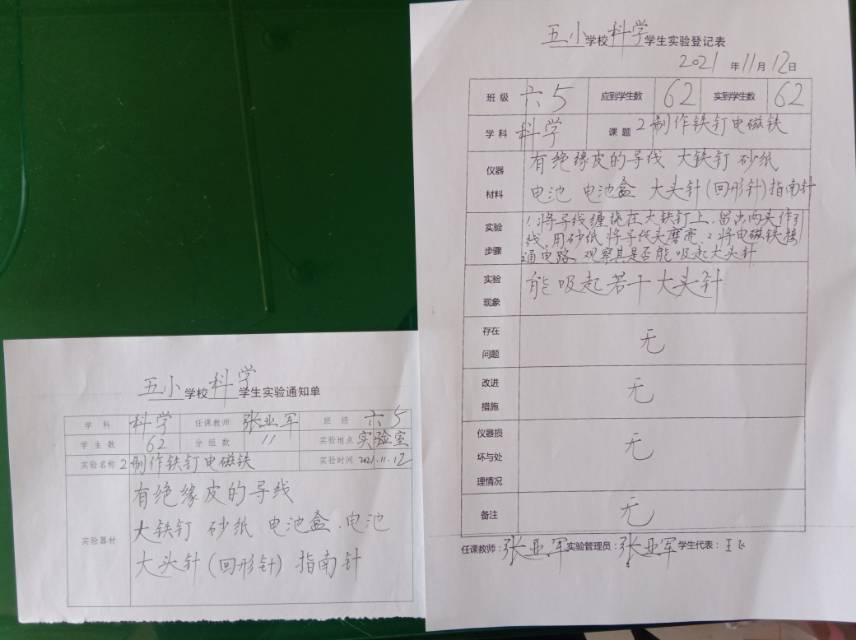 五小学校科学学生实验通知单
学科 科学 任课教师 张亚军 班级 六5
学生数 62 分组数 11 实验地点 实验室
实验名称 2制作铁钉电磁铁 实验时间 2021.11.12
实验器材
有绝缘皮的导线
大铁钉 砂纸 电池盒、电池
大头针(回形针) 指南针
五小学校科学学生实验登记表
2021年11月12日
班级 六5 应到学生数 62 实到学生数 62
学科 科学 课题 2制作铁钉电磁铁
仪器材料
有绝缘皮的导线 大铁钉 砂纸
电池 电池盒 大头针(回形针)指南针
实验步骤
1.将导线缠绕在大铁钉上,留出两头作引
线,用砂纸将导线头磨亮.2.将电磁铁接
通电路,观察其是否能吸起大头针
实验现象
能吸起若干大头针
存在问题 无
改进措施 无
仪器损坏与处理情况 无
备注 无
任课教师:张亚军 实验管理员:张亚军 学生代表:王飞